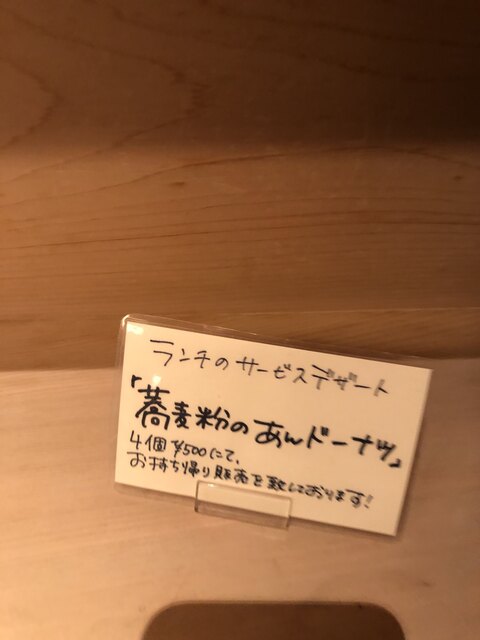 ランチのサービスデザート
「蕎麦粉のあんドーナツ」
4個¥500にて、
お持ち帰り販売を致しております!